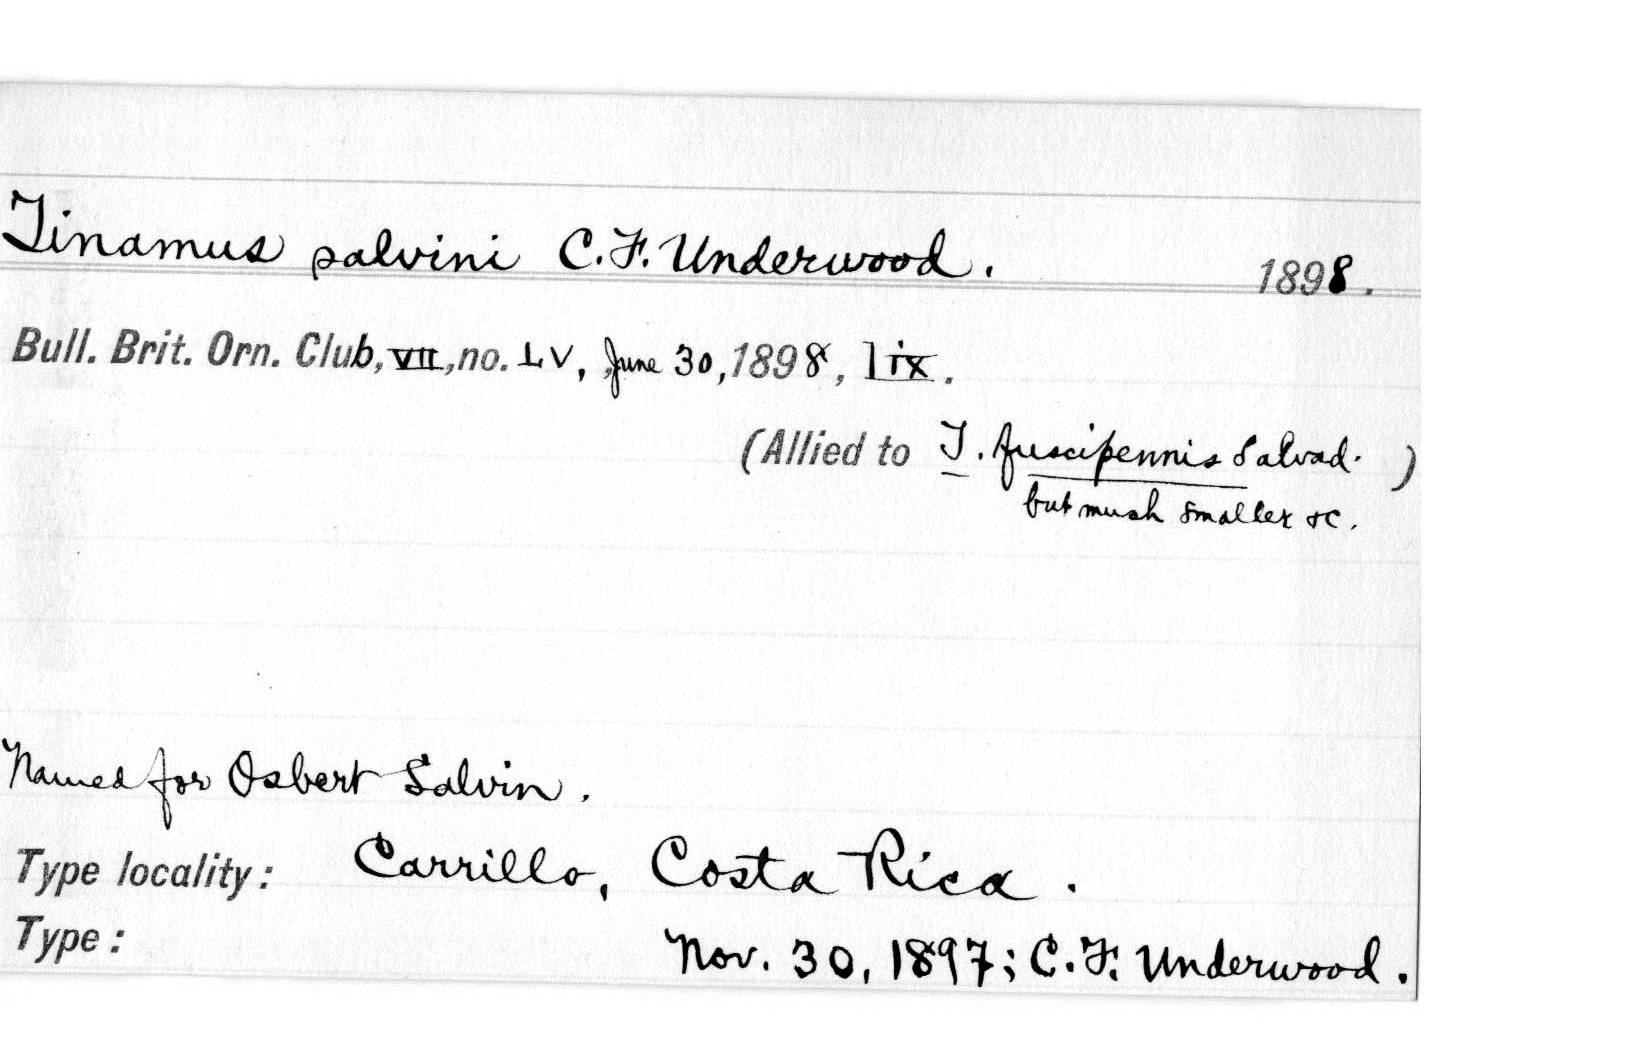 Tinamus salvini C.F. Underwood. 1898.
Bull. Brit. Orn. Club, VII, no. LV, June 30, 1898, lix.
(Allied to T. fuscipennis Salvad. )
but much smaller &c.
Named for Osbert Salvin.
Type locality: Carrillo, Costa Rica.
Type: Nov. 30, 1897; C.F. Underwood.